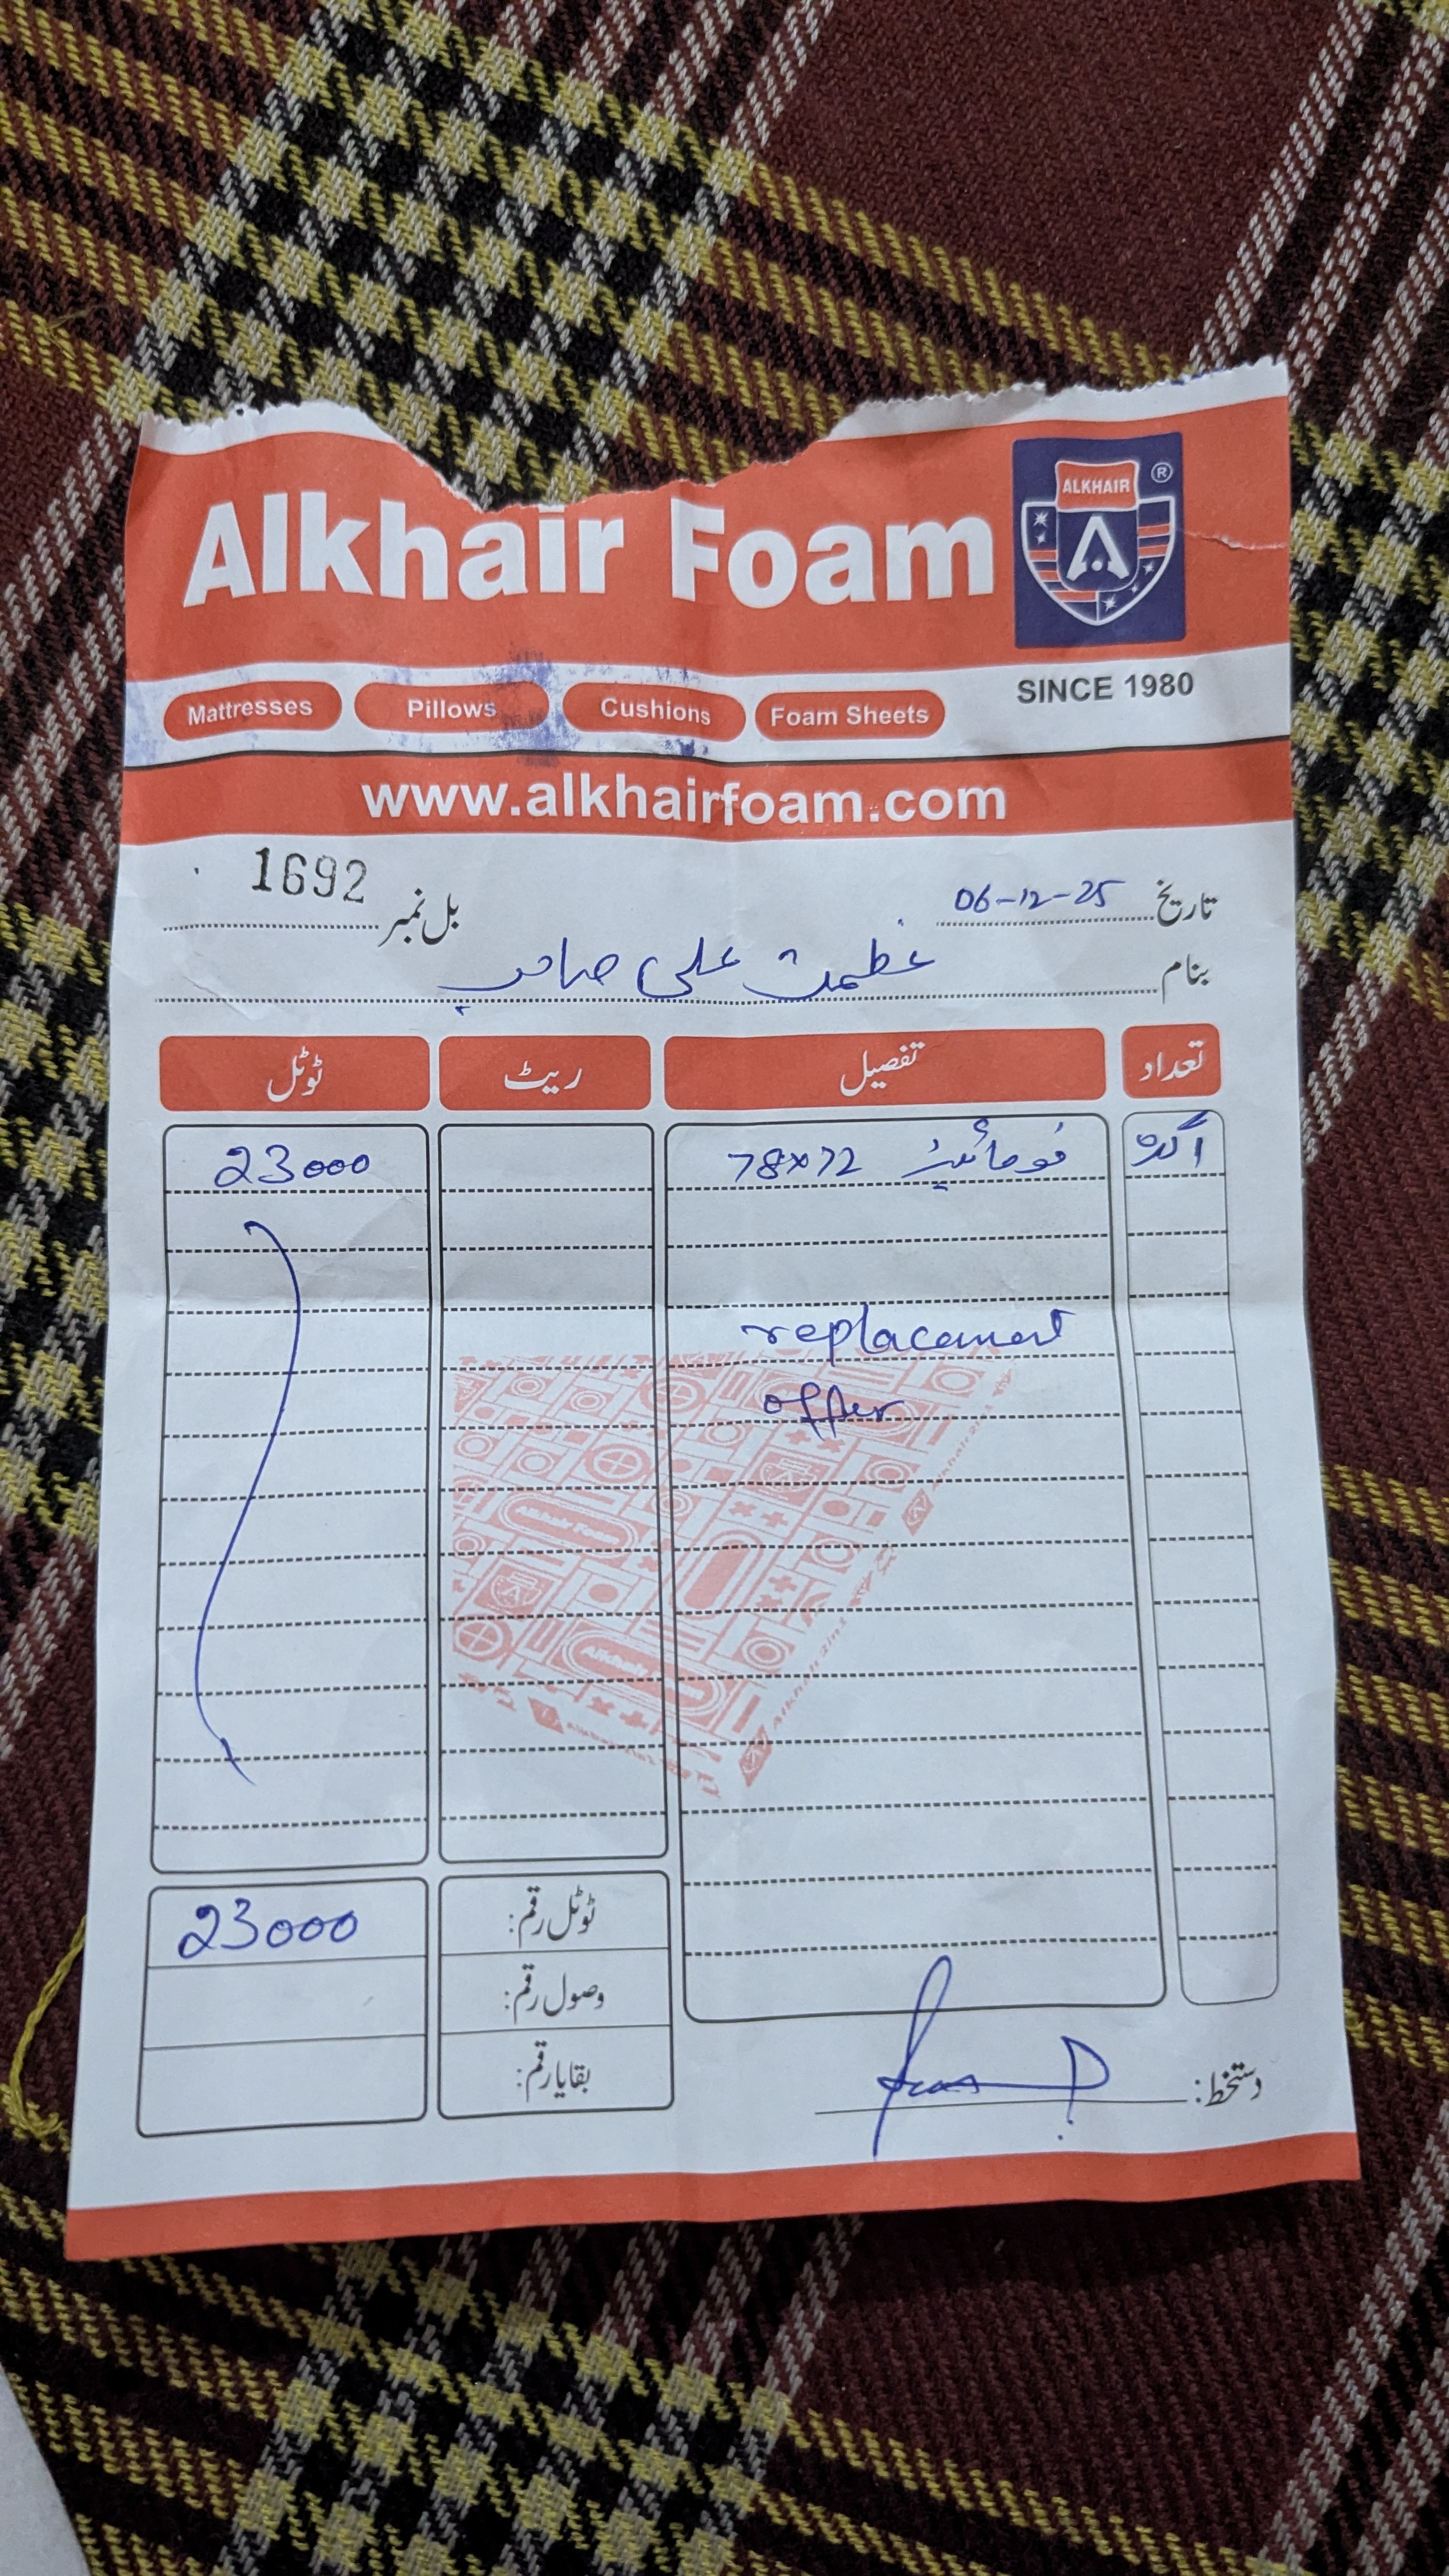 Alkhair Foam
ALKHAIR ®
SINCE 1980
Mattresses Pillows Cushions Foam Sheets
www.alkhairfoam.com
تاریخ 06-12-25 بل نمبر 1692
بنام عظمت علی صاحب
تعداد تفصیل ریٹ ٹوٹل
78x72 23000
replacement
offer
Alkhair Foam
ٹوٹل رقم: 23000
وصول رقم:
بقایا رقم:
دستخط: